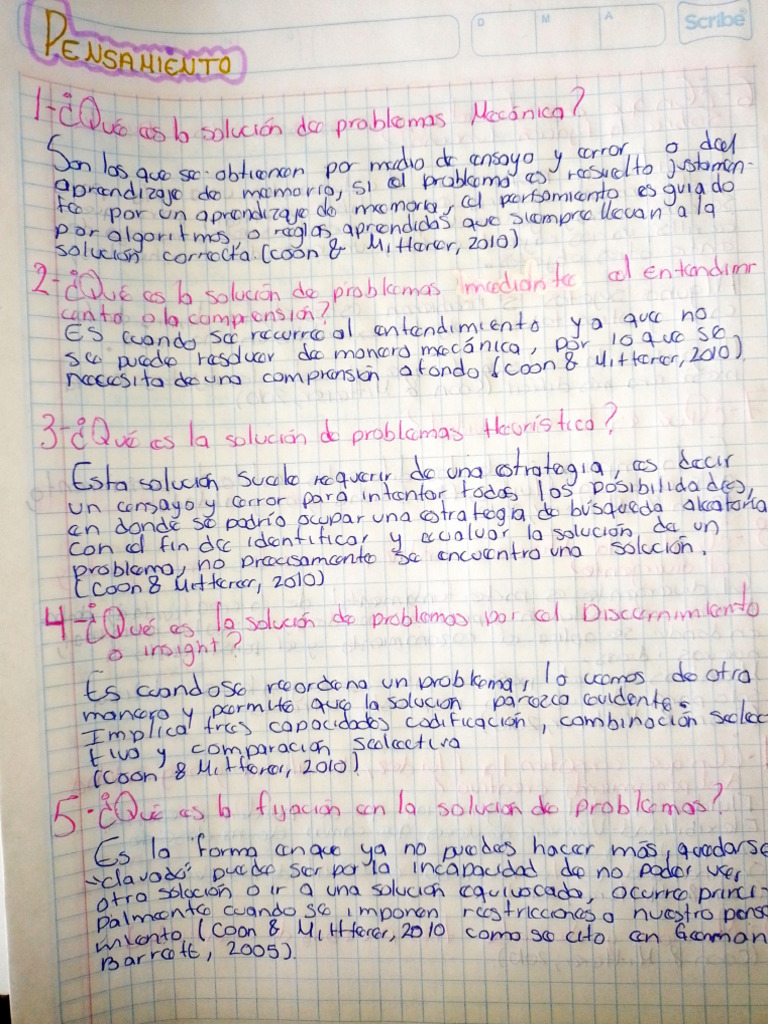 D M A Scribe
PENSAMIENTO
1-¿Qué es la solución de problemas Mecánica?
Son los que se obtienen por medio de ensayo y error, o del
aprendizaje de memoria, si el problema es resuelto justamen-
te por un aprendizaje de memoria, el pensamiento es guiado
por algoritmos, o reglas aprendidas que siempre llevan a la
solución correcta. (Coon & Mitterer, 2010)
2-¿Qué es la solución de problemas mediante el entendimi
ento o la comprensión?
Es cuando se recurre al entendimiento ya que no
se puede resolver de manera mecánica, por lo que se
necesita de una comprensión a fondo (Coon & Mitterer, 2010)
3-¿Qué es la solución de problemas Heurística?
Esta solución suele requerir de una estrategia, es decir
un ensayo y error para intentar todas las posibilidades,
en donde se podría ocupar una estrategia de búsqueda aleatoria
con el fin de identificar y evaluar la solución de un
problema, no precisamente se encuentra una solución.
(Coon & Mitterer, 2010)
4-¿Qué es la solución de problemas por el Discernimiento
o insight?
Es cuando se reordena un problema, lo vemos de otra
manera y permite que la solución parezca evidente.
Implica tres capacidades codificación, combinación selec
tiva y comparación selectiva
(Coon & Mitterer, 2010)
5-¿Qué es la fijación en la solución de problemas?
Es la forma en que ya no puedes hacer más, quedarse
"clavado" puede ser por la incapacidad de no poder ver
otra solución o ir a una solución equivocada, ocurre princi-
palmente cuando se imponen restricciones a nuestro pensa
miento (Coon & Mitterer, 2010 como se cito en German
Barrett, 2005).